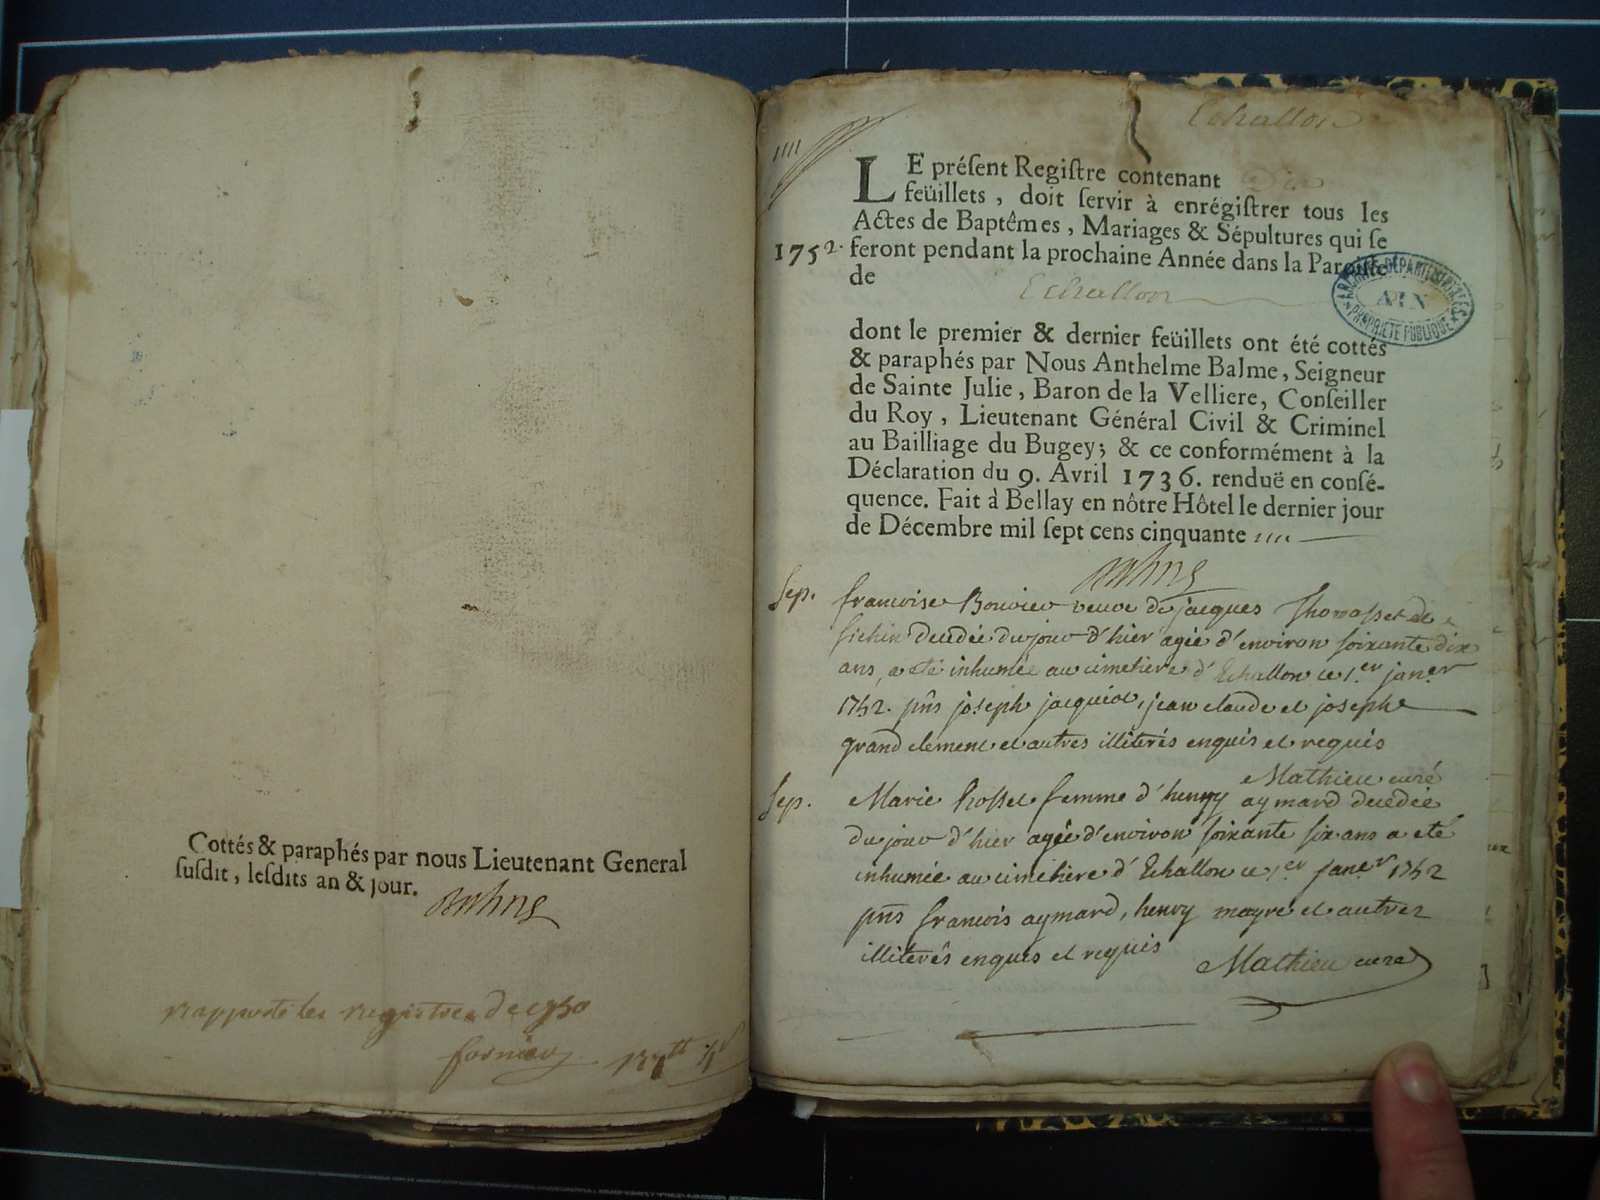 Cottés & paraphés par nous Lieutenant General
ſuſdit, leſdits an & jour.
rapporté les registres de 1750
Echallon
LE préſent Regiſtre contenant Dix
feüillets, doit ſervir à enrégiſtrer tous les
Actes de Baptêmes, Mariages & Sépultures qui ſe
1752. feront pendant la prochaine Année dans la Paroiſſe
de Echallon
ARCHIVES DÉPARTEMENTALES
AIN
PROPRIÉTÉ PUBLIQUE
dont le premier & dernier feüillets ont été cottés
& paraphés par Nous Anthelme Balme, Seigneur
de Sainte Julie, Baron de la Velliere, Conſeiller
du Roy, Lieutenant Général Civil & Criminel
au Bailliage du Bugey; & ce conformément à la
Déclaration du 9. Avril 1736. renduë en conſé-
quence. Fait à Bellay en nôtre Hôtel le dernier jour
de Décembre mil ſept cens cinquante
Sep. francoise Bouvier veuve de jacques Thomasset de
decedée du jour d'hier agée d'environ soixante dix
ans, a eté inhumée au cimetiere d'Echallon ce 1.er jan.er
1752. pñs joseph jacquiot, jean claude et joseph
grand clement et autres illiterés enquis et requis
Mathieu curé
Sep. Marie Rosset femme d'henry aymard decedée
du jour d'hier agée d'environ soixante six ans a eté
inhumée au cimetiere d'Echallon ce 1.er Jane.r 1752
pñs francois aymard, henry mayre et autres
illiterés enquis et requis
Mathieu curé